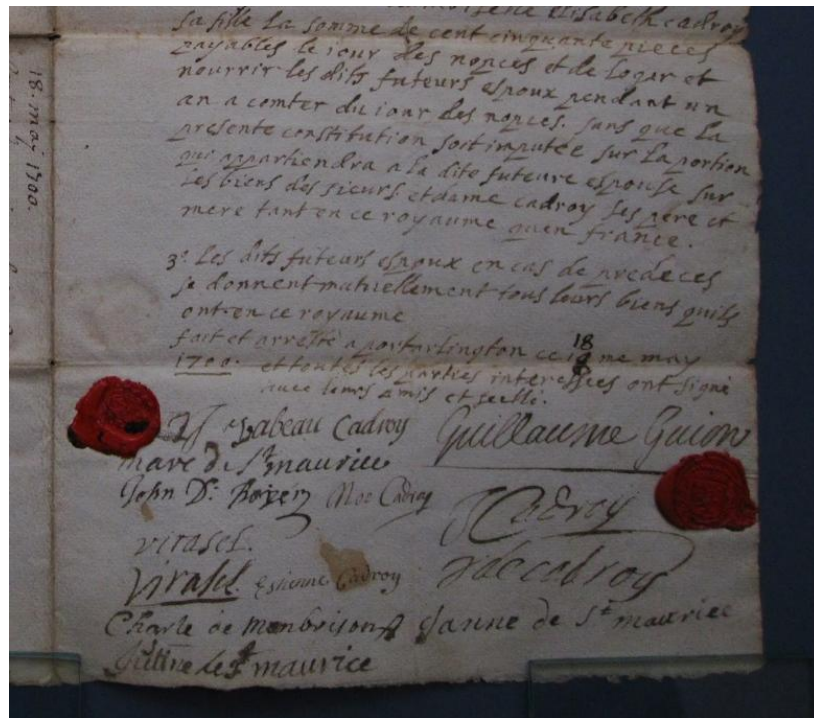 moiselle Elisabeth Cadroy
sa fille la somme de cent cinquante pieces
payables le iour des nopces et de logar et
nourrir les dits futeurs espoux pendant un
an a comter du iour des nopces. sans que la
presente constitution soit imputée sur la portion
qui appartiendra a la dite future espouse sur
les biens des sieurs et dame cadroy ses pere et
mere tant en ce royaume quen france.
3º. Les dits futeurs espoux en cas de predeces
se donnent mutuellement tous leurs biens quils
ont en ce royaume
fait et arresté a portarlington ce 18me may
1700. et toutes les parties interessées ont signé
avec leurs amis et scellé.
Isabeau Cadroy Guillaume Guion
marc de St maurice
John Dr. Noe Cadroy Cadroy
virasel.
Virasel. Estienne Cadroy de cadroy
Charle de Monbrison Janne de St mauriec
de St maurice
18. may 1700.